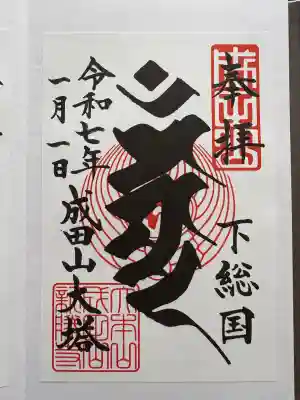 奉拝
下総国
令和七年
一月一日
成田山大塔